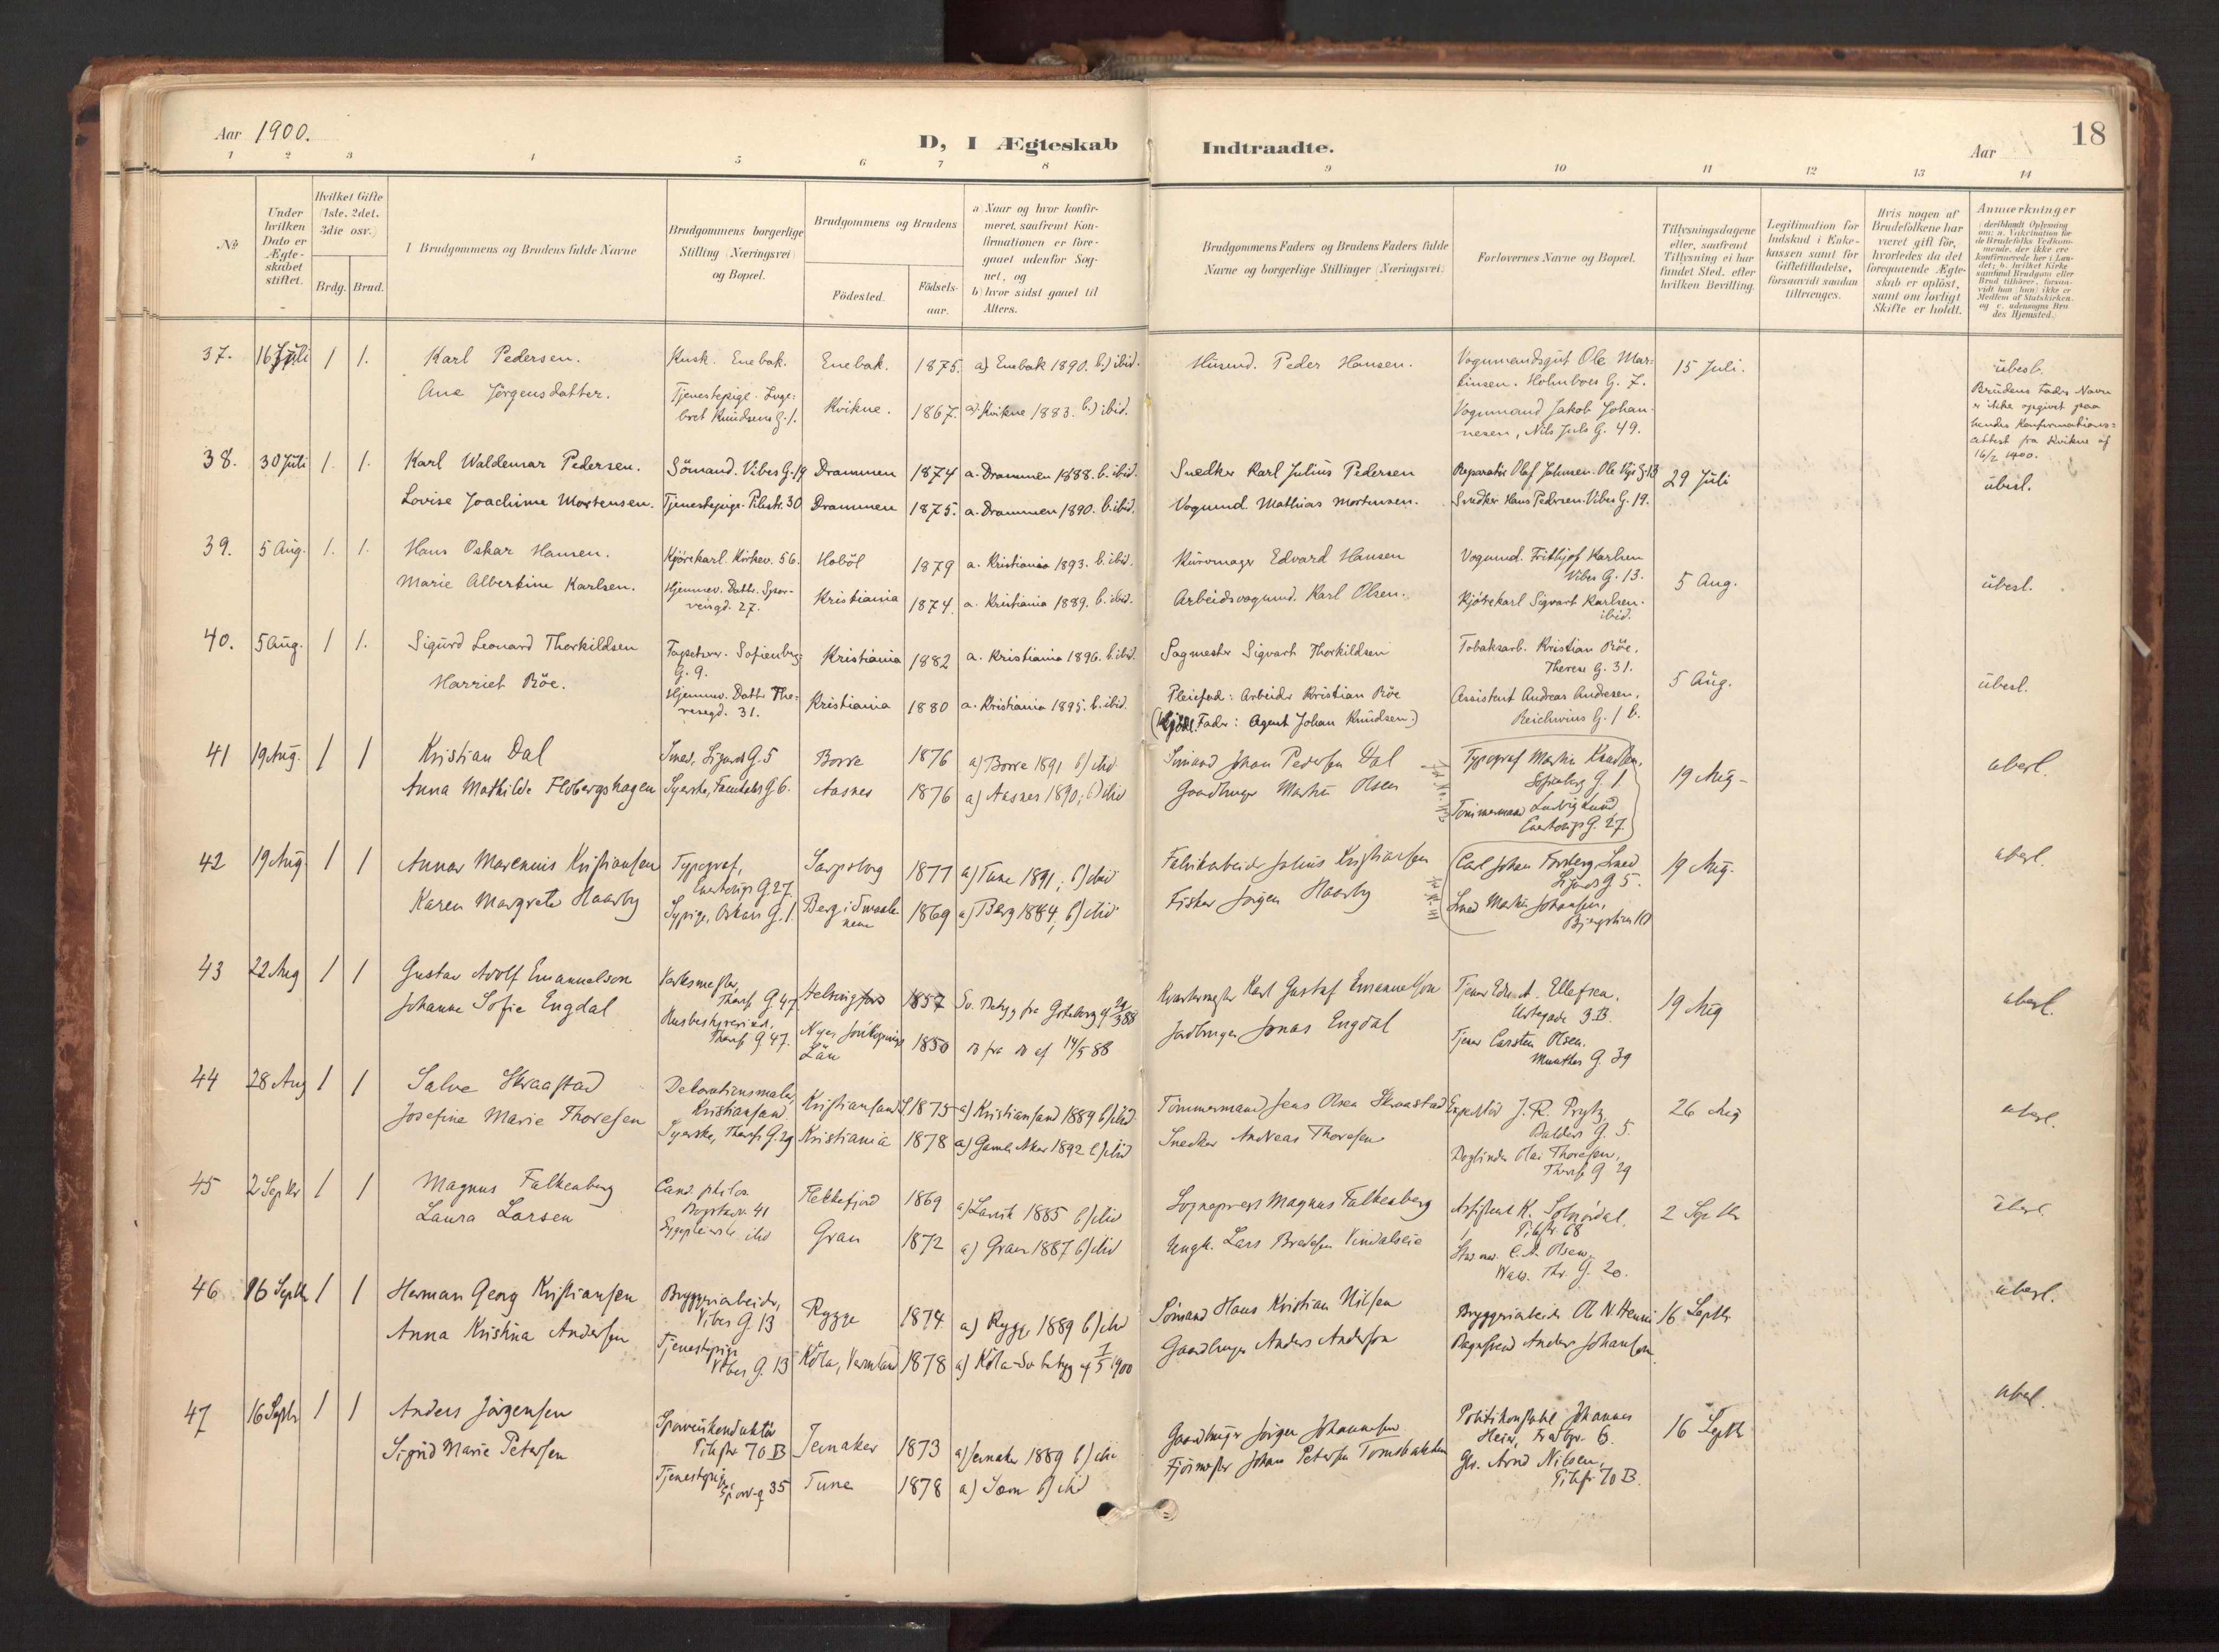 Aar 1900.
D, I Ægteskab Indtraadte.
18
Aar
1 2 3 4 5 6 7 8 9 10 11 12 13 14
No
Under hvilken Dato er Ægteskabet stiftet.
Hvilket Gifte (1ste, 2det, 3die osv.)
Brdg. Brud.
Brudgommens og Brudens fulde Navne
Brudgommens borgerlige Stilling (Næringsvei) og Bopæl.
Brudgommens og Brudens
Födested.
Födselsaar.
a) Naar og hvor konfirmeret, saafremt Konfirmationen er foregaaet udenfor Sognet, og
b) hvor sidst gaaet til Alters.
Brudgommens Faders og Brudens Faders fulde Navne og borgerlige Stillinger (Næringsvei)
Forlovernes Navne og Bopæl.
Tillysningsdagene eller, saafremt Tillysning ei har fundet Sted, efter hvilken Bevilling.
Legitimation for Indskud i Enkekassen samt for Giftetilladelse, forsaavidt saadan tiltrænges.
Hvis nogen af Brudefolkene har været gift för, hvorledes da det foregaaende Ægteskab er oplöst, samt om lovligt Skifte er holdt.
Anmærkninger
37. 16 Juli 1 1. Karl Pedersen. Kusk. Enebak. Enebak. 1875. a) Enebak 1890. b.) ibid. Husmd. Peder Hansen. Vognmandsgut Ole Martinsen. Holmboes G. 7. 15 Juli. übesl.
Ane Jörgensdatter. Tjenestepige. Ingebret Knudsens G. 1. Kvikne. 1867. a) Kvikne 1883. b.) ibid. Vognmand Jakob Johannesen, Nils Juls G. 49.
Brudens Faders Navn er ikke opgivet paa hendes Konfirmationsattest fra Kvikne af 16/2 1900.
38. 30 Juli 1. 1. Karl Waldemar Pedersen. Sömand. Vibes G. 19 Drammen 1874 a. Drammen 1888. b. ibid. Snedker Karl Julius Pedersen 29 Juli übesl.
Lovise Joachime Mortensen. Tjenestepige. Pilestr. 30 Drammen 1875. a. Drammen 1890. b. ibid. Vognmd. Mathias Mortensen. Snedker Hans Pedersen. Vibes G. 19.
39. 5 Aug. 1. 1. Hans Oskar Hansen. Kjörekarl. Kirkev. 56. Hoböl 1879 a. Kristiania 1893. b. ibid. Kurvmager Edvard Hansen Vognmd. Frithjof Karlsen Vibes G. 13. 5 Aug. übesl.
Marie Albertine Karlsen. Hjemmev. Datter. Sporveisgd. 27. Kristiania 1874. a. Kristiania 1889. b. ibid. Arbeidsvognmd. Karl Olsen. Kjörekarl Sigvart Karlsen. ibid.
40. 5 Aug. 1 1. Sigurd Leonard Thorkildsen Tapetserer. Sofienberg G. 9. Kristiania 1882 a. Kristiania 1896. b. ibid. Sagmester Sigvart Thorkildsen Tobaksarb. Kristian Böe, Therese G. 31. 5 Aug. übesl.
Harriet Böe. Hjemmev. Datter Theresegd. 31. Kristiania 1880 a. Kristiania 1895. b. ibid. Pleiefad: Arbeider Kristian Böe
Fader: Agent Johan Knudsen.) Assistent Andreas Andresen, Reichweins G. 1 b.
41 19 Aug. 1 1 Kristian Dal Smed, Sigurds G. 5 Borre 1876 a) Borre 1891 b) ibid Sömand Johan Pedersen Dal Typograf Martin Knudsen, Sofienberg G. 1. 19 Aug. übesl.
Anna Mathilde Flobergshagen Syerske, G 6. Aasnes 1876 a) Aasnes 1890; b) ibid Gaardbruger Martin Olsen Tömmermand Ludvig Lund, G. 27.
42 19 Aug. 1 1 Annar Marenius Kristiansen Typograf, G. 27 Sarpsborg 1877 a) Tune 1891; b) ibid Fabrikarbeider Julius Kristiansen Carl Johan Forsberg, Smed Sigurds G 5. 19 Aug. übesl.
Karen Margrete Haarby Sypige, Oskars G. 1. Berg i Smaalenene 1869 a) Berg 1884, b) ibid Fisker Jörgen Haarby Smed Martin Johansen, 10
43 22 Aug 1 1 Gustav Adolf Emanuelson Værksmester, G. 47. Helsingfors 1857 Sv. Betyg fra Göteborg af 24/3 88 Karl Gustaf Emanuelson Tjener Edv. A. Ellefsen, Urtegade 3 B. 19 Aug übesl.
Johanne Sofie Engdal Husbestyrerinde, G. 47. Jönköpings Län 1850 D fra D af 14/5 88 Jordbruger Jonas Engdal Tjener Carsten Olsen. Munthes G. 39
44 28 Aug 1 1 Salve Skraastad Dekorationsmaler, Kristiansand Kristiansand S 1875 a) Kristiansand 1889 b) ibid. Tömmermand Jens Olsen Skraastad Expeditör J. R. Prytz, Balders G. 5. 26 Aug übesl.
Josefine Marie Thoresen Syerske, G. 29 Kristiania 1878 a) Gamle Aker 1892 b) ibid Snedker Andreas Thoresen Bogbinder Olai Thoresen, G 29
45 2 Septbr 1 1 Magnus Falkenberg Cand. philos. Bogstadv. 41 Flekkefjord 1869 a) Larvik 1885 b) ibid Sogneprest Magnus Falkenberg Assistent K. Pilestr. 68 2 Septbr übesl.
Laura Larsen Sygepleierske ibid Gran 1872 a) Gran 1887 b) ibid Ungk. Lars Bredesen Vindalseie C. A. Olsen, G. 20.
46 16 Septbr 1 1 Herman Georg Kristiansen Bryggeriarbeider, Vibes G. 13 Rygge 1874 a) Rygge 1889 b) ibid Sömand Hans Kristian Nilsen Bryggeriarbeider 16 Septbr. übesl.
Anna Kristina Andersen Tjenestepige Vibes G. 13 Köla, Vermland 1878 a) Köla-Sv. betyg af 7/5 1900 Gaardbruger Anders Anderson Anders Johansen
47 16 Septbr 1 1 Anders Jörgensen Sporveiskonduktör Pilestr. 70 B Jevnaker 1873 a) Jevnaker 1889 b) ibid Gaardbruger Jörgen Johannesen Politikonstabel Johannes 16 Septbr übesl.
Sigrid Marie Petersen Tjenestepige, Sporv.g. 35 Tune 1878 a) Som b) ibid Fjösmester Johan Petersen Arnd Nilsen, Pilestr 70 B.